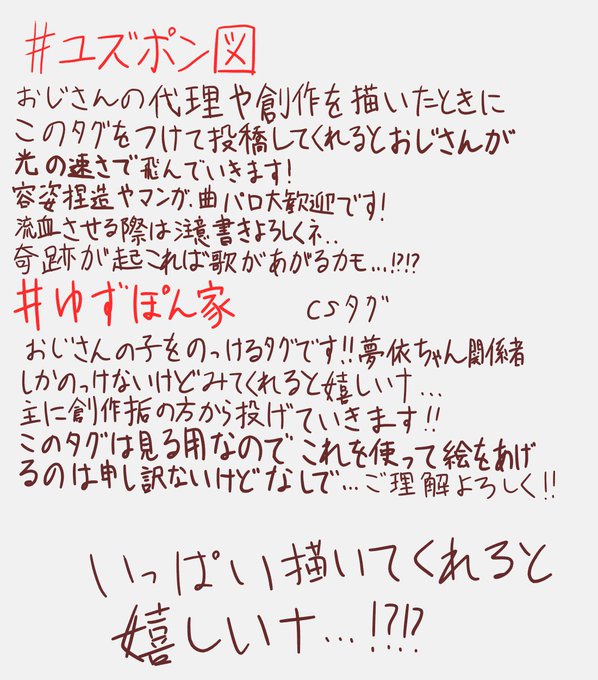 #ユズポン図
おじさんの代理や創作を描いたときに
このタグをつけて投稿してくれるとおじさんが
光の速さで飛んでいきます!
容姿捏造やマンガ、曲パロ大歓迎です!
流血させる際は注意書きよろしくネ..
奇跡が起これば歌があがるカモ...!?!?
#ゆずぽん家 CSタグ
おじさんの子をのっけるタグです!!夢依ちゃん関係者
しかのっけないけどみてくれると嬉しいナ...
主に創作垢の方から投げていきます!!
このタグは見る用なので これを使って絵をあげ
るのは申し訳ないけどなしで...ご理解よろしく!!
いっぱい描いてくれると
嬉しいナ...!?!?